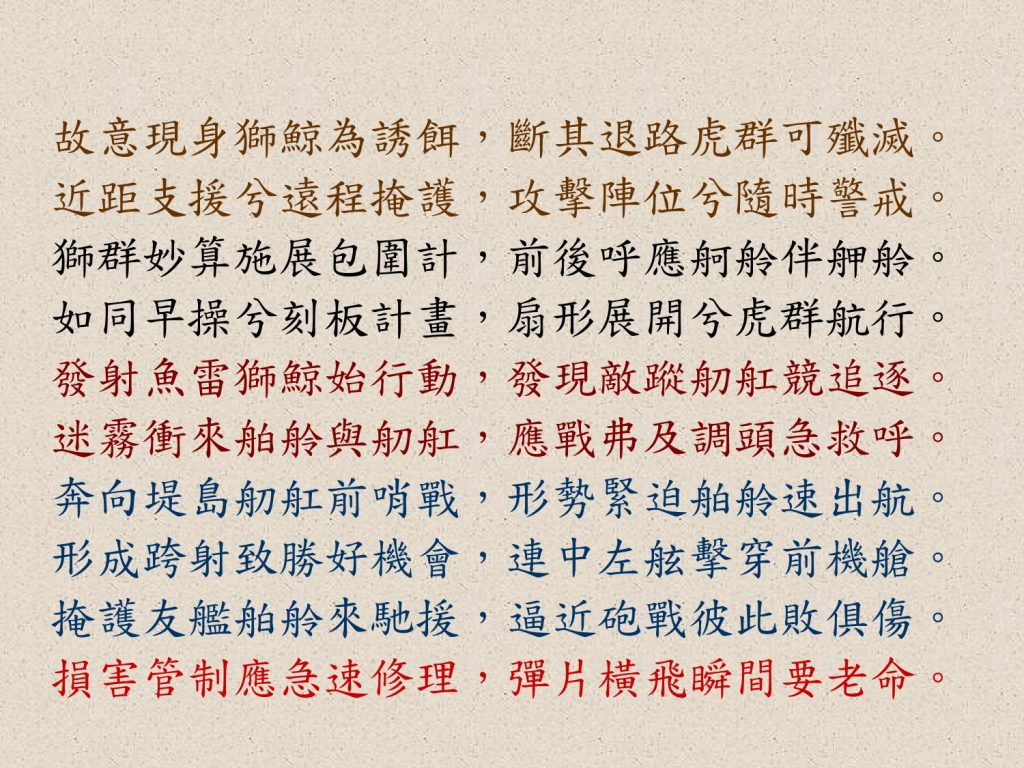 故意現身獅鯨為誘餌，斷其退路虎群可殲滅。
近距支援兮遠程掩護，攻擊陣位兮隨時警戒。
獅群妙算施展包圍計，前後呼應舸舲伴舺舲。
如同早操兮刻板計畫，扇形展開兮虎群航行。
發射魚雷獅鯨始行動，發現敵蹤舠舡競追逐。
迷霧衝來舶舲與舠舡，應戰弗及調頭急救呼。
奔向堤島舠舡前哨戰，形勢緊迫舶舲速出航。
形成跨射致勝好機會，連中左舷擊穿前機艙。
掩護友艦舶舲來馳援，逼近砲戰彼此敗俱傷。
損害管制應急速修理，彈片橫飛瞬間要老命。